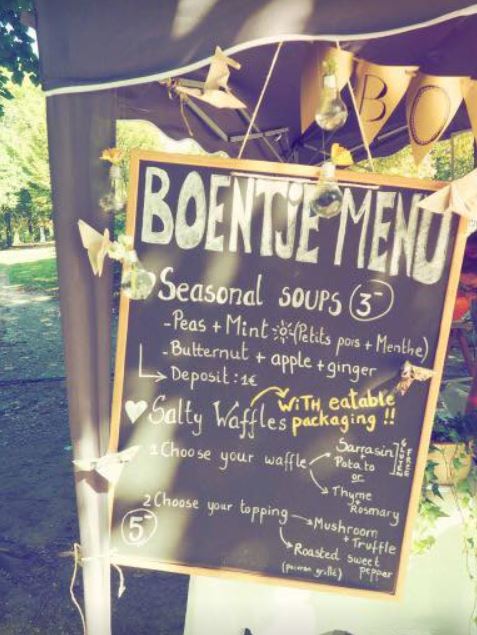 BO
BOENTJE MENU
Seasonal soups 3-
- Peas + Mint (Petits pois + Menthe)
- Butternut + apple + ginger
Deposit : 1€
Salty Waffles WiTH eatable packaging !!
1 Choose your waffle
Sarrasin
Potato
GLUTEN FREE
or
Thyme + Rosmary
2 Choose your topping
Mushroom + Truffle
5-
Roasted sweet pepper
(poivron grillé)